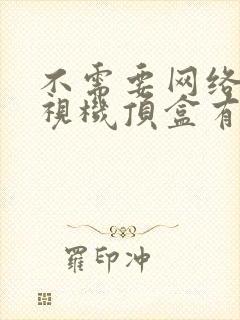 不需要网络
視機頂盒有
羅印冲